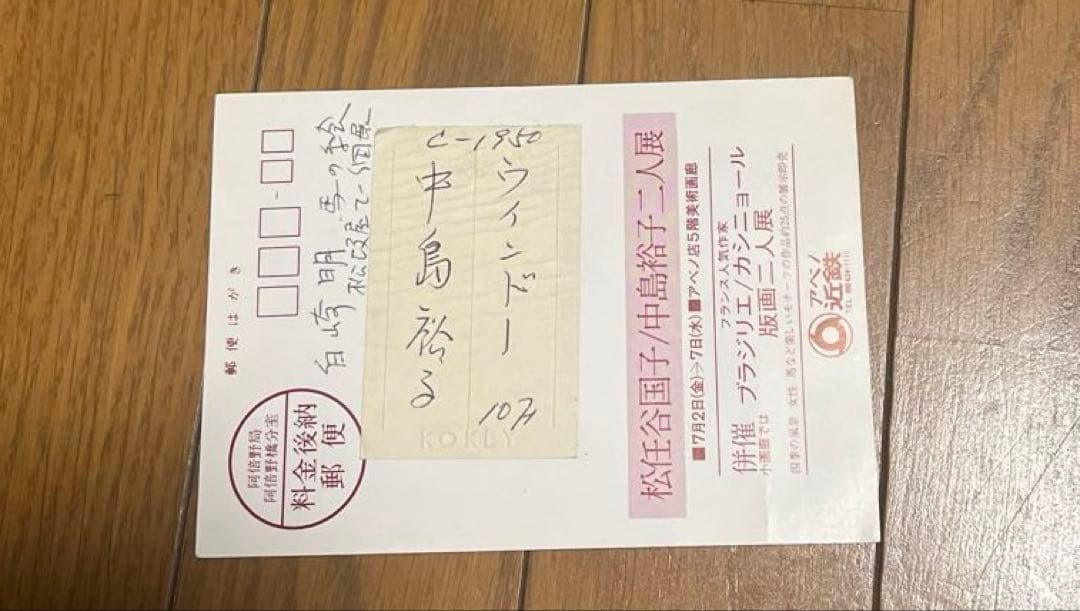 郵便はがき
阿倍野局
阿倍野橋分室
料金後納
郵便
白崎明 牛の絵
松坂屋で個展
C-1950
中島裕子
10万
KOKUY
松任谷国子/中島裕子二人展
■7月2日(金)→7日(水)■アベノ店5階美術画廊
併催
小画廊では
フランス人気作家
ブラジリエ/カシニョール
版画二人展
四季の風景 女性 馬など楽しいモチーフの作品約25点の展示即売
アベノ
近鉄